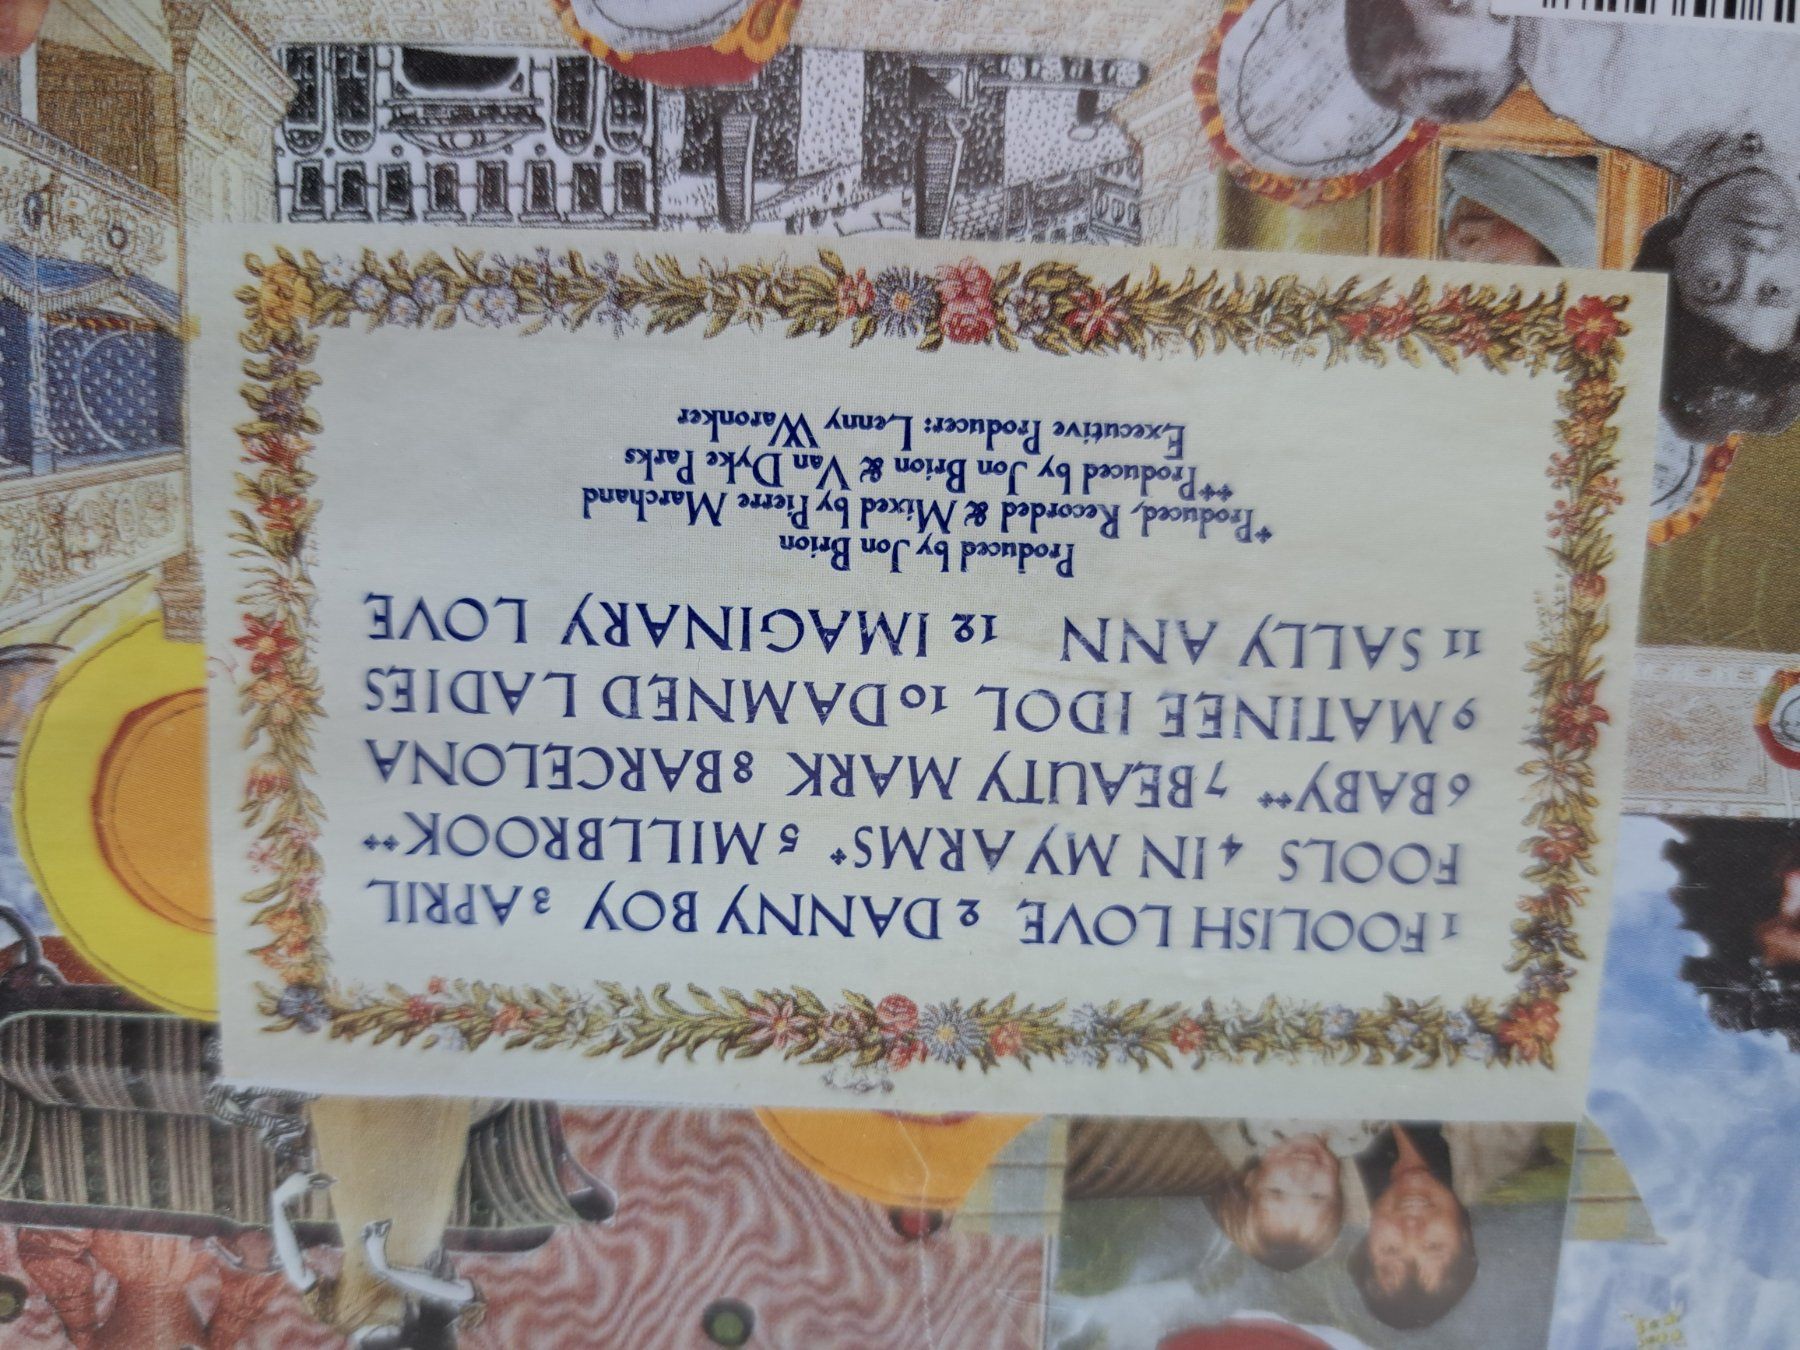 1 FOOLISH LOVE 2 DANNY BOY 3 APRIL
FOOLS 4 IN MY ARMS* 5 MILLBROOK**
6 BABY** 7 BEAUTY MARK 8 BARCELONA
9 MATINEE IDOL 10 DAMNED LADIES
11 SALLY ANN 12 IMAGINARY LOVE
Produced by Jon Brion
*Produced, Recorded & Mixed by Pierre Marchand
**Produced by Jon Brion & Van Dyke Parks
Executive Producer: Lenny Waronker